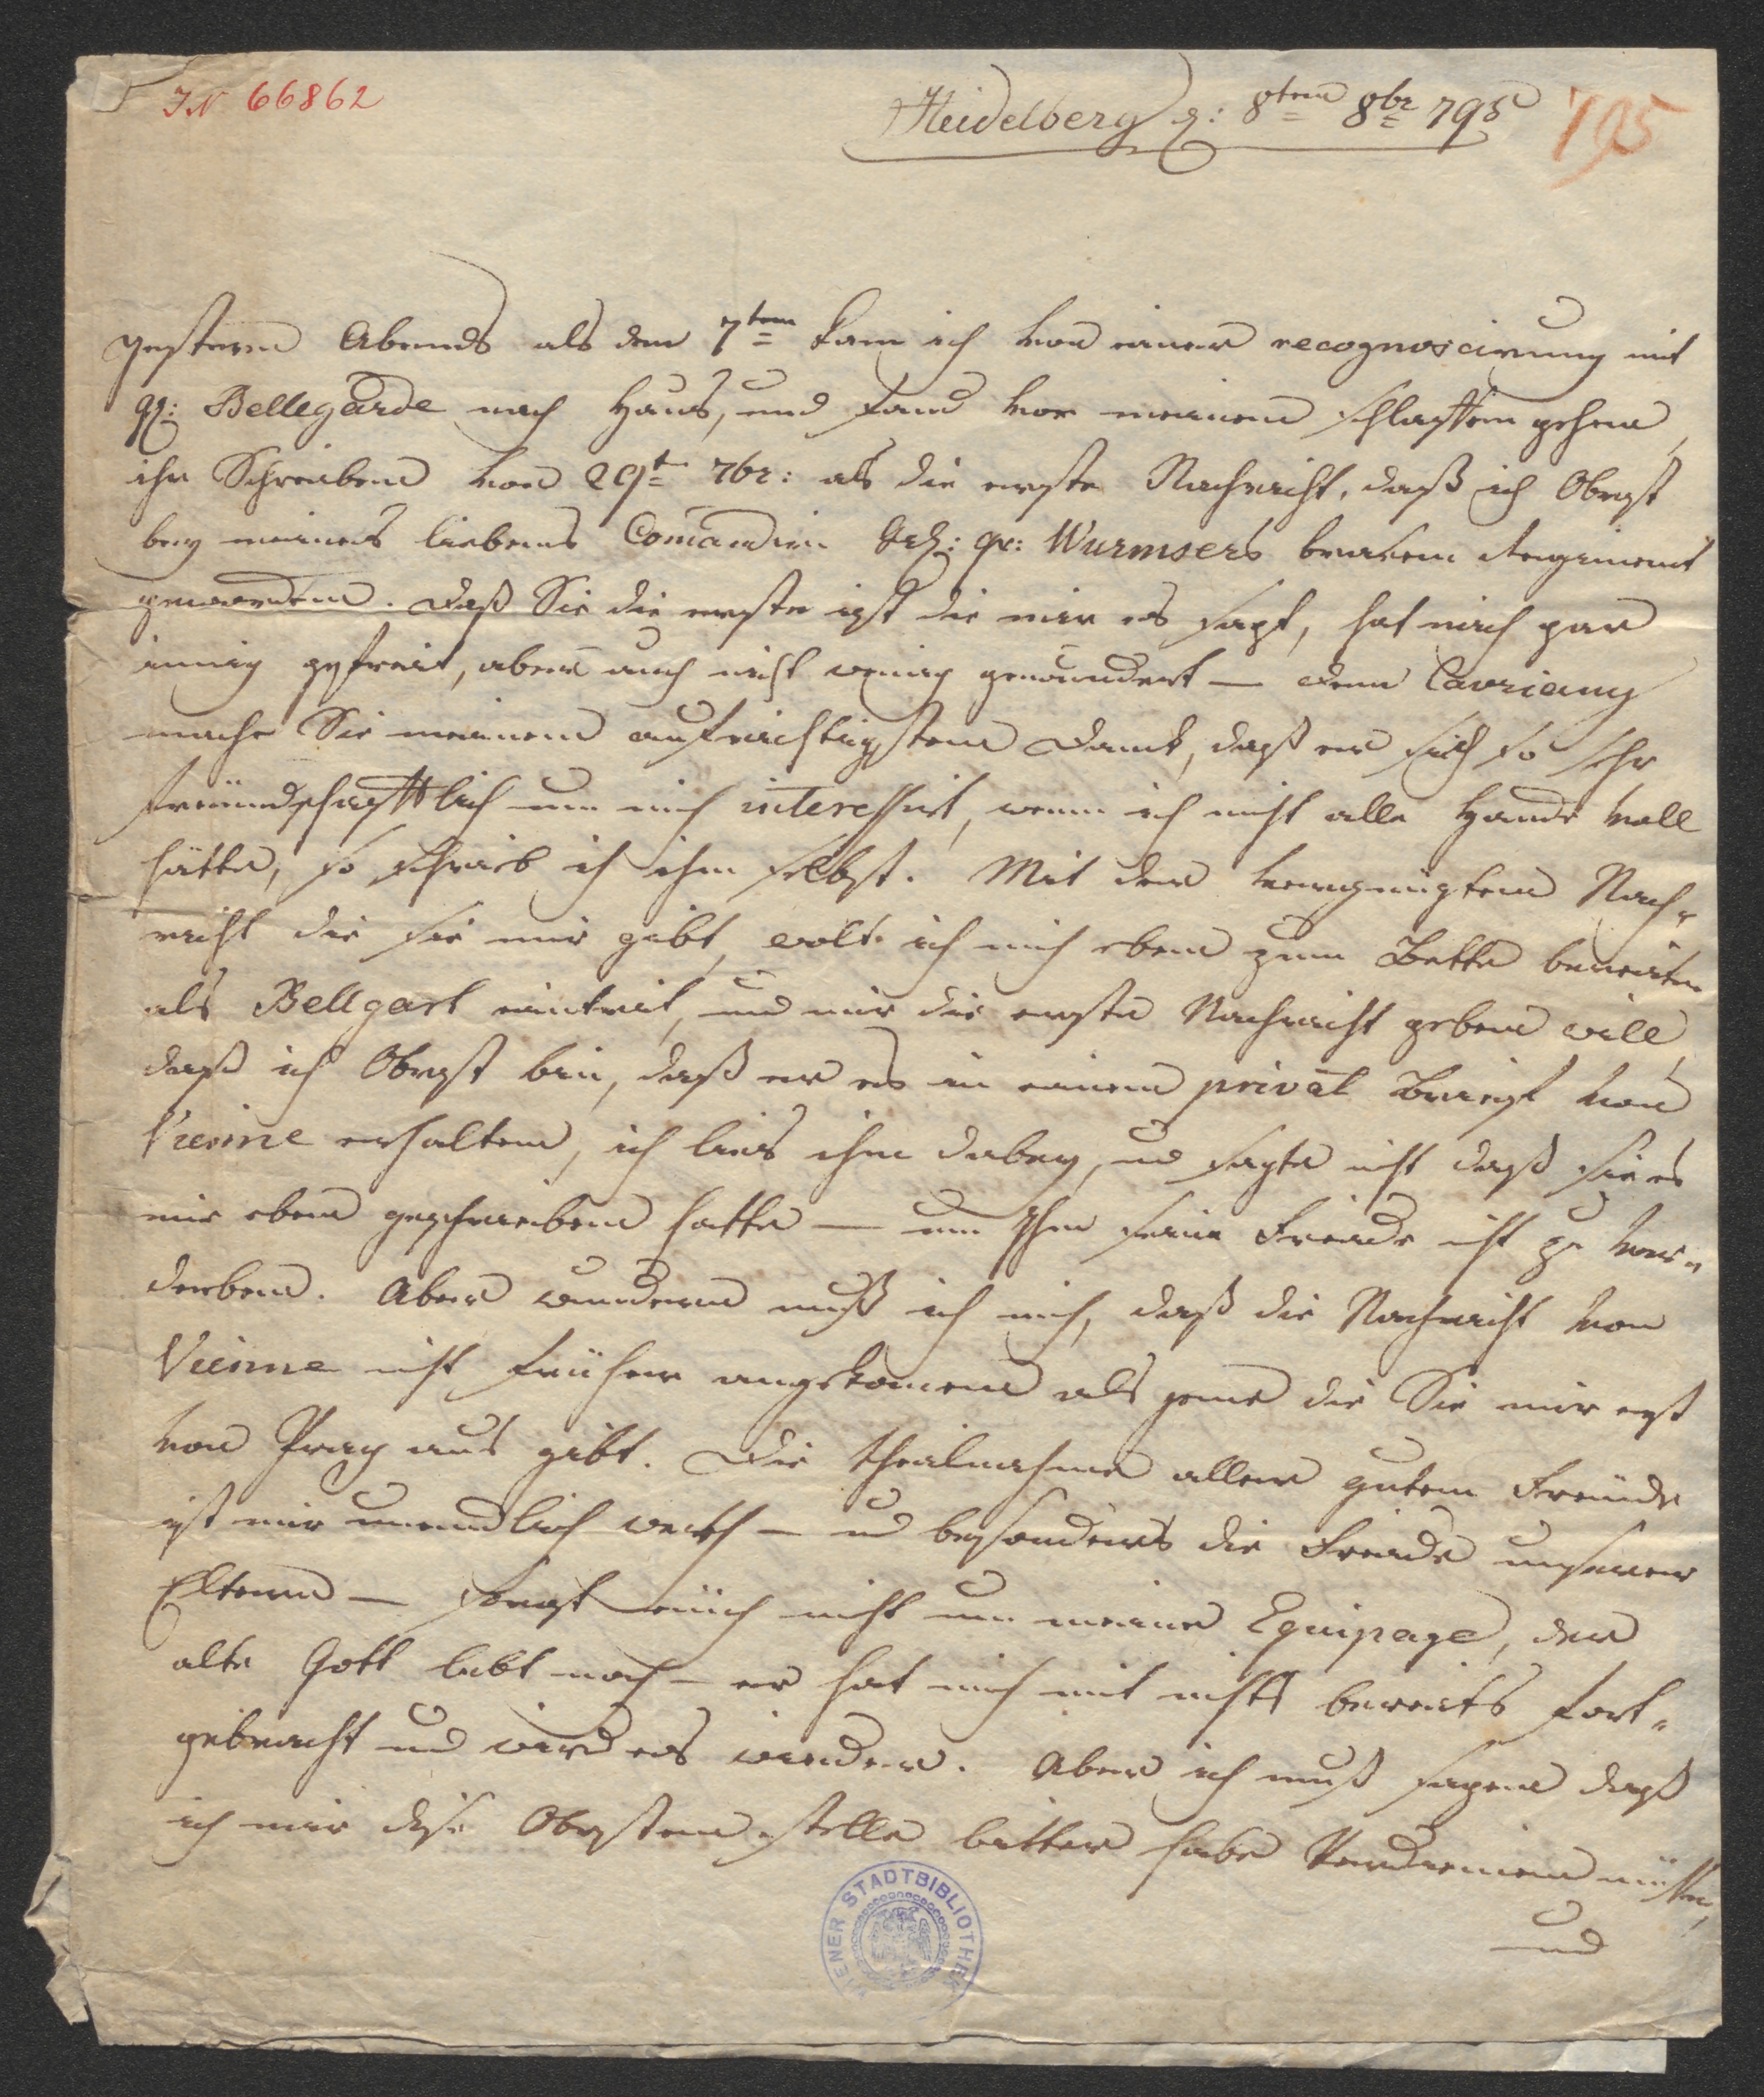 IN 66862
Heidelberg d: 8ten 8br 795 795
gestern Abends als den 7ten kam ich von einer recognoscirung mit
gr: Bellegarde nach Haus, und fand vor meinem schlaffen gehen,
ihr Schreiben von 29t 7br: als die erste Nachricht, daß ich Obrist
bey meines liebens Comandirn gr: Wurmsers braven Regiment
geworden. Daß Sie die erste ist die mir es sagt, hat mich gar
innig gefreit, aber auch nicht wenig gewundert — dem Cavriany
mache Sie meinen aufrichtigsten Dank, daß er sich so sehr
freündschafftlich um mich interessirt, wenn ich nicht alle Hände voll
hätte, so schrieb ich ihm selbst. Mit der vergnügten Nach-
richt die sie mir gibt, wolt ich mich eben zum Bette bereiten
als Bellgart eintrit, und mir die erste Nachricht geben will,
daß ich Obrist bin, daß er es in einem privat Brief von
Vienne erhalten, ich lies ihn dabey, und sagte nicht daß sie es
mir eben geschrieben hatte — um Ihm seine Freide nicht zu ver-
derben. Aber wundern muß ich mich, daß die Nachricht von
Vienne nicht früher angekomen als jene die Sie mir erst
von Prag aus gibt. Die theilnahme aller guten Freünde
ist mir unendlich werth — und besonders die Freide unserer
Eltern — sorgt eüch nicht um meine Equipage, der
alte Gott lebt noch — er hat mich mit nichts bereits fort-
gebracht und wird es wieder. Aber ich muß sagen daß
ich mir dise Obristen stelle bitter habe Verdienen müssen,
und
WIENER STADTBIBLIOTHEK